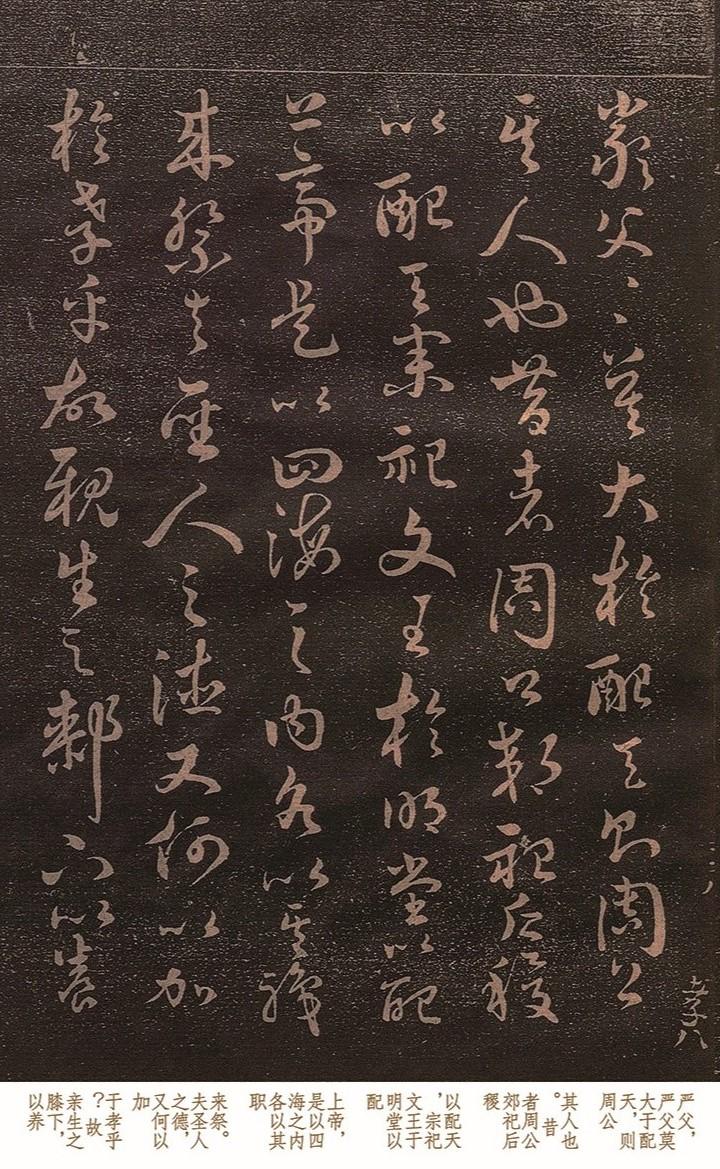 嚴父〻莫大於配天則周公
其人也昔者周公郊祀后稷
以配天宗祀文王於明堂以配
上帝是以四海之内各以其職
来祭夫聖人之德又何以加
於孝乎故親生之膝下以養
孝八
严父，
严父莫
大于配
天，则
周公
其人也
。昔
者周公
郊祀后
稷
以配天
，宗祀
文王于
明堂以
配
上帝，
是以四
海之内
各以其
职
来祭。
夫圣人
之德，
又何以
加
于孝乎
？故
亲生之
膝下，
以养